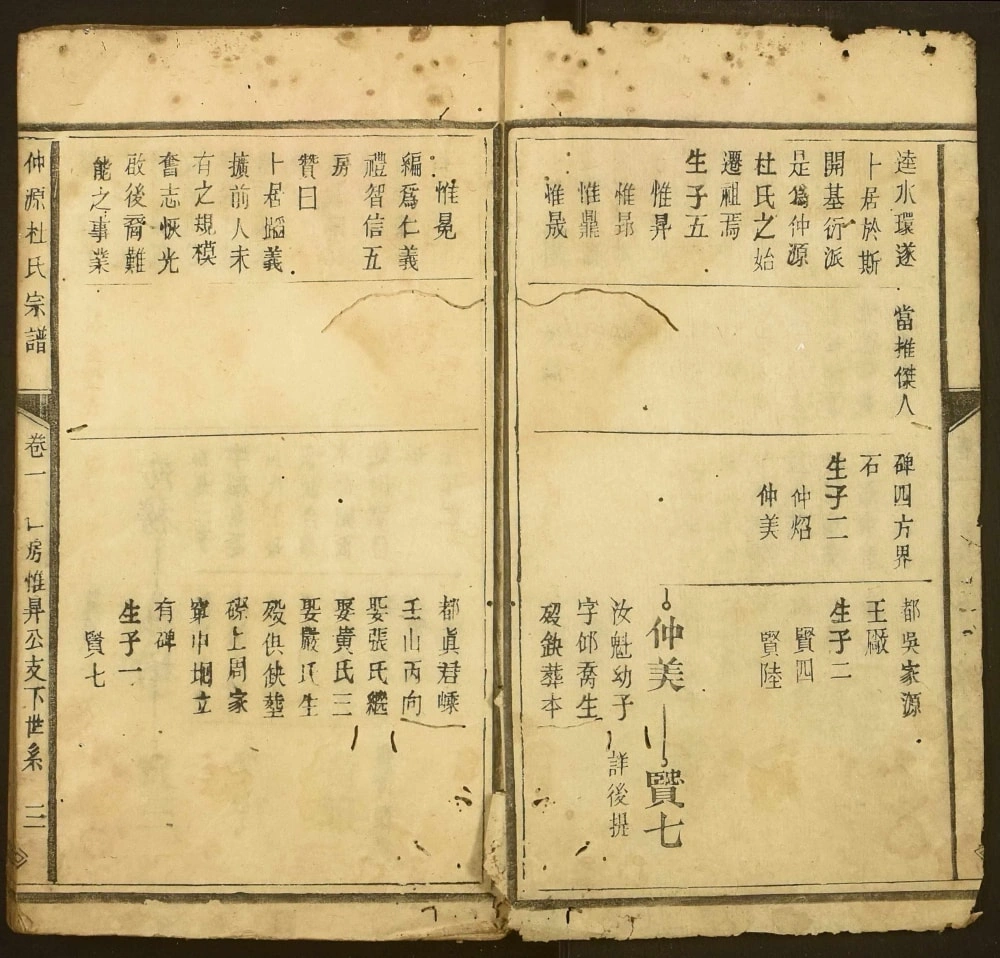 逵水環遂
卜居於斯
開基衍派
是爲仲源
杜氏之始
遷祖焉
生子五
惟昇
惟昻
惟鼎
惟晟
當推傑人
碑四方界
石
生子二
仲炤
仲美
都吳家源
王廠
生子二
賢四
賢陸
仲美
汝魁幼子
字邰喬生
歿缺葬本
賢七
詳後提
惟冕
編爲仁義
禮智信五
房
贊曰
卜居蹈義
擴前人未
有之規模
奮志恢光
啟後裔難
能之事業
都眞君嵊
壬山丙向
娶張氏繼
娶黄氏三
娶嚴氏生
歿俱缺塟
磜上周家
有碑
生子一
賢七
仲源杜氏宗譜
卷一
房惟昇公支下世系
二